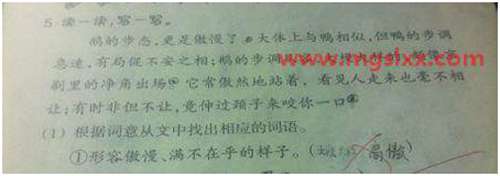 5.读一读,写一写。
鹅的步态,更是傲慢了。大体上与鸭相似,但鸭的步调
急速,有局促不安之相;鹅的步调
www.mgslxx.com
剧里的净角出场。它常傲然地站着,看见人走来也毫不相
让;有时非但不让,竟伸过颈子来咬你一口。
(1)根据词意从文中找出相应的词语。
①形容傲慢、满不在乎的样子。( 高傲 )